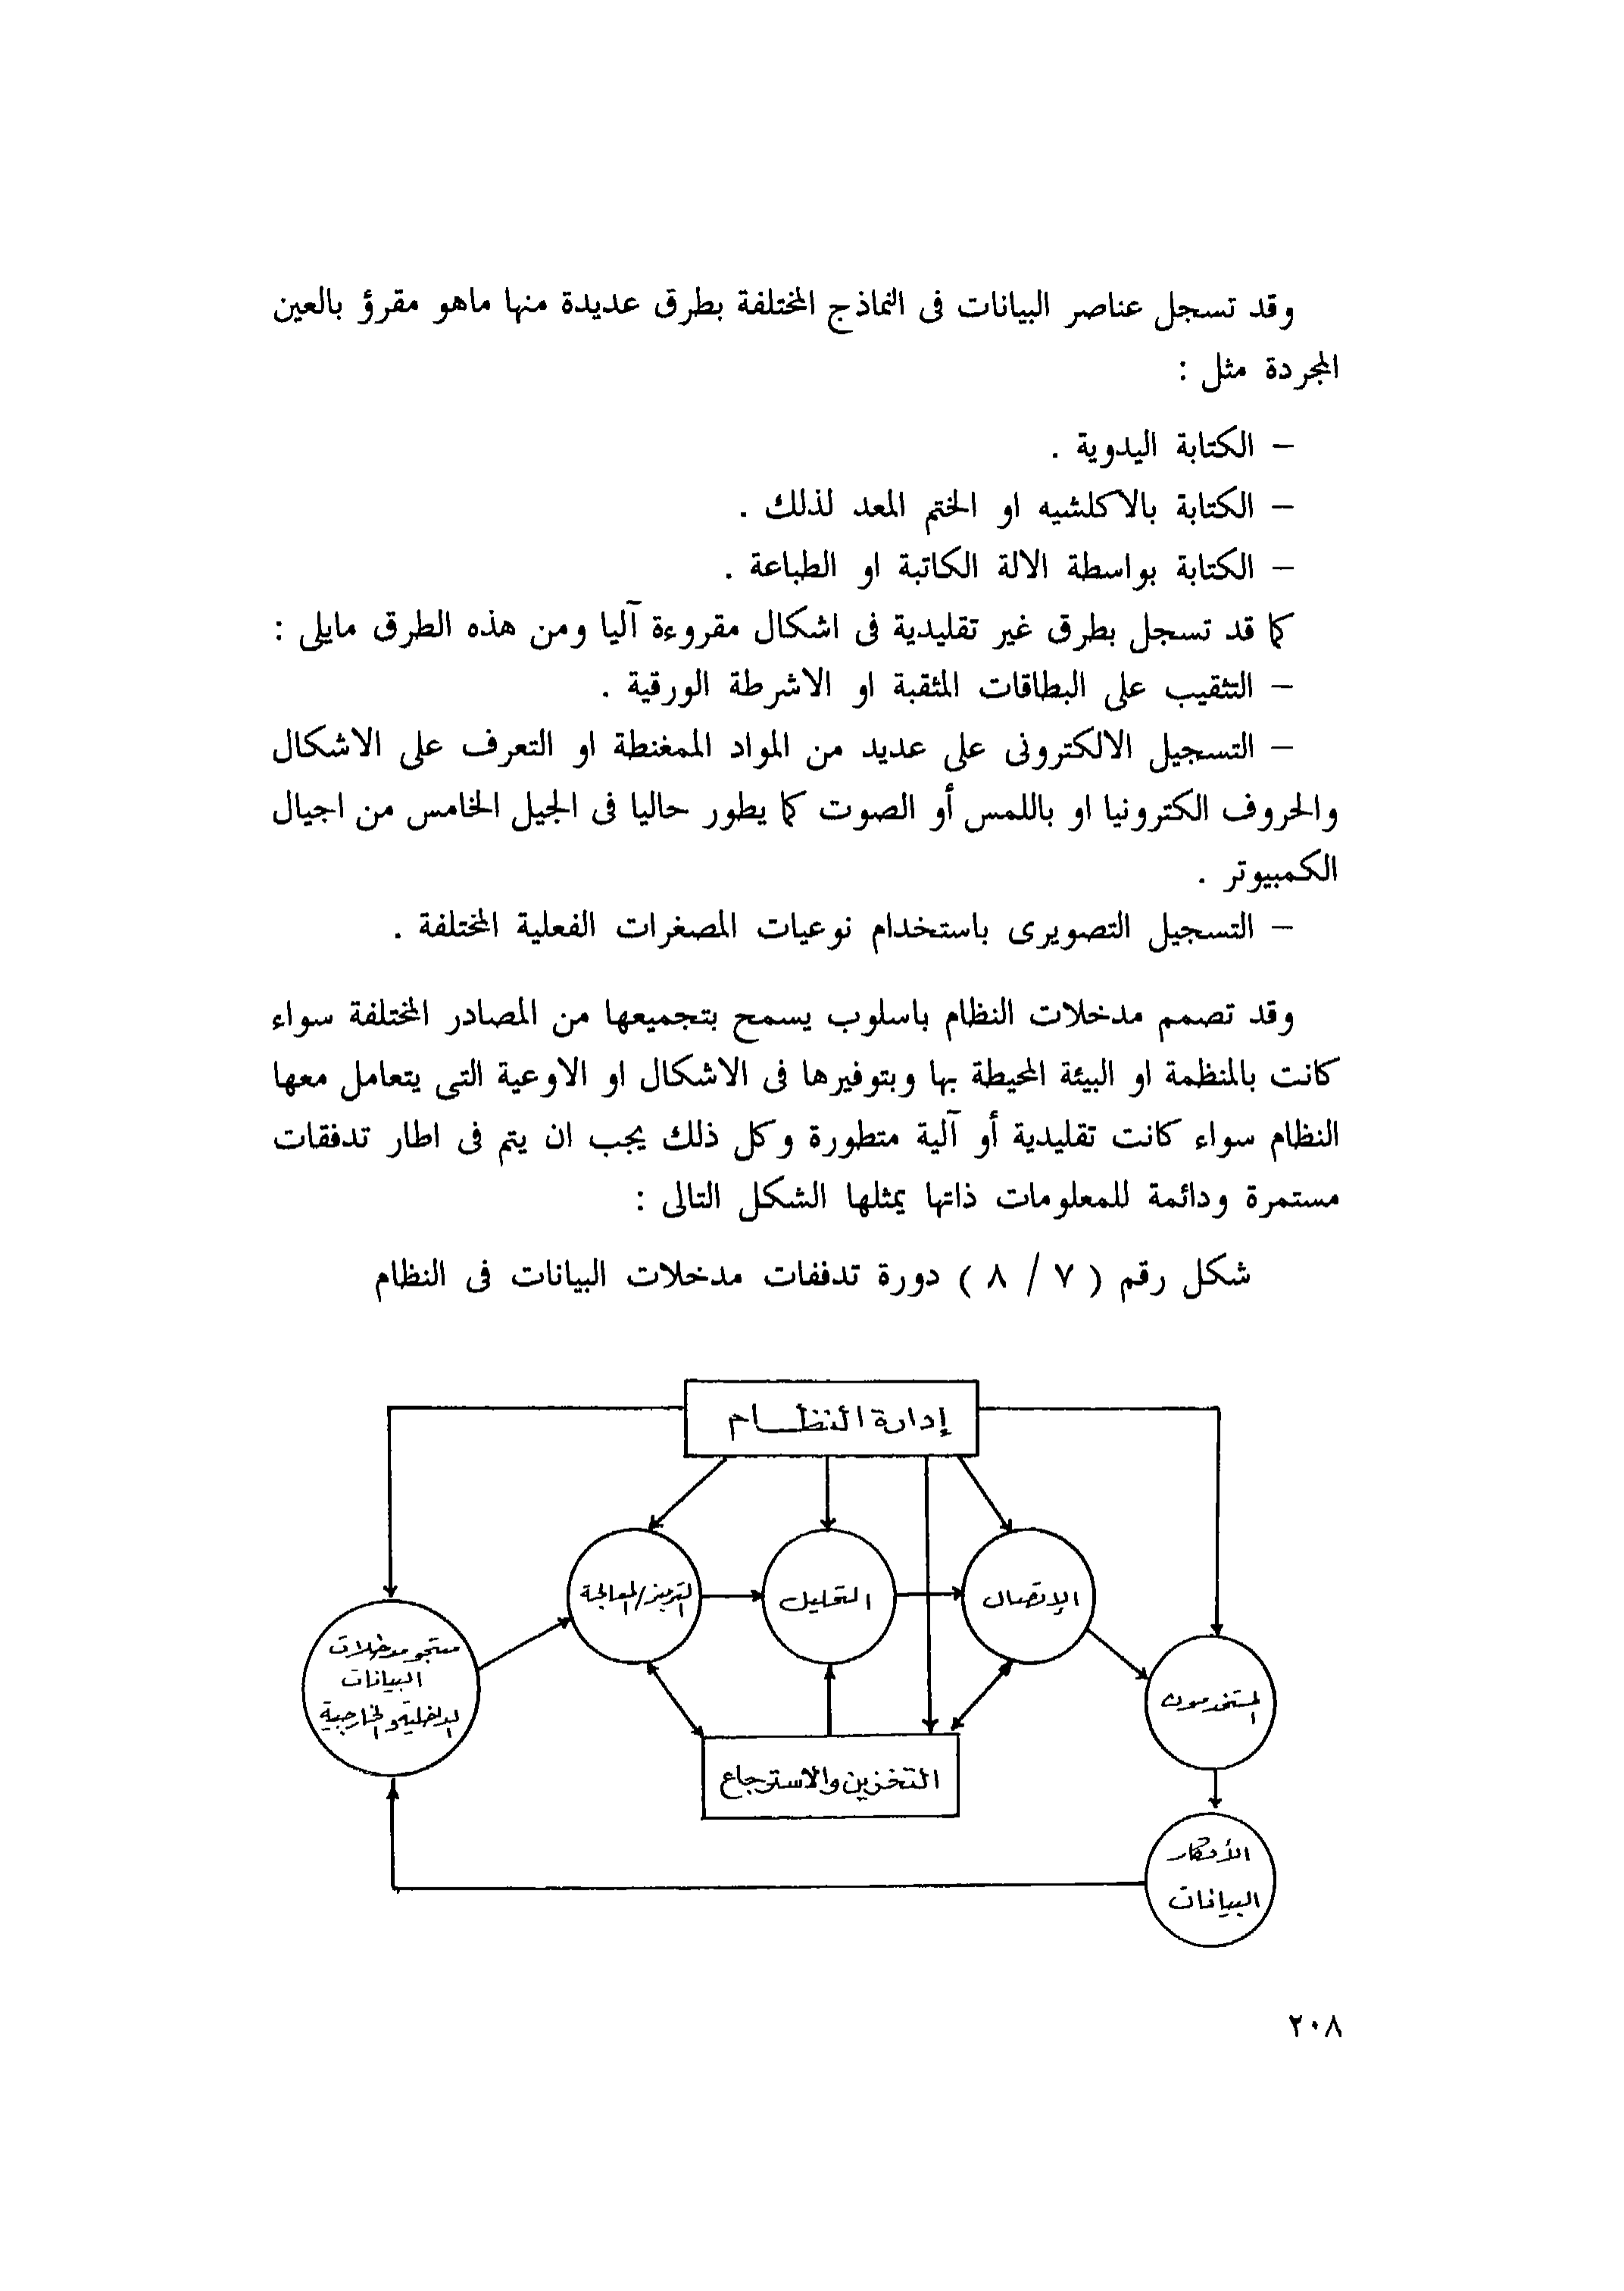 وقد تسجل عناصر البيانات فى النماذج المختلفة بطرق عديدة منها ماهو مقرؤ بالعين
المجردة مثل :
– الكتابة اليدوية .
– الكتابة بالاكلشيه او الختم المعد لذلك .
– الكتابة بواسطة الالة الكاتبة او الطباعة .
كما قد تسجل بطرق غير تقليدية فى اشكال مقروءة آليا ومن هذه الطرق مايلى :
– التثقيب على البطاقات المثقبة او الاشرطة الورقية .
– التسجيل الالكترونى على عديد من المواد الممغنطة او التعرف على الاشكال
والحروف الكترونيا او باللمس أو الصوت كما يطور حاليا فى الجيل الخامس من اجيال
الكمبيوتر .
– التسجيل التصويرى باستخدام نوعيات المصغرات الفعلية المختلفة .
وقد تصمم مدخلات النظام باسلوب يسمح بتجميعها من المصادر المختلفة سواء
كانت بالمنظمة او البيئة المحيطة بها وبتوفيرها فى الاشكال او الاوعية التى يتعامل معها
النظام سواء كانت تقليدية أو آلية متطورة وكل ذلك يجب ان يتم فى اطار تدفقات
مستمرة ودائمة للمعلومات ذاتها يمثلها الشكل التالى :
شكل رقم ( ٧ / ٨ ) دورة تدففات مدخلات البيانات فى النظام
إدارة النظـــام
الإتصال
التحليل
الترميز/المعالجة
منتجو مدخلات
البيانات
الداخلية والخارجية
المستخدمون
التخزين والاسترجاع
الأفكار
البيانات
٢٠٨